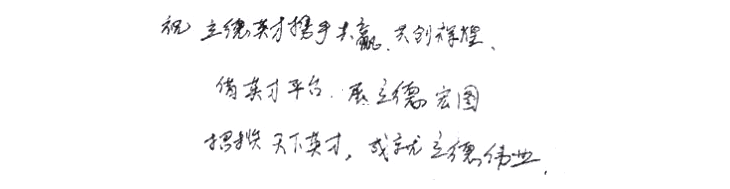 祝立德英才携手共赢、共创辉煌、
借英才平台.展立德宏图
招揽天下英才,成就立德伟业.